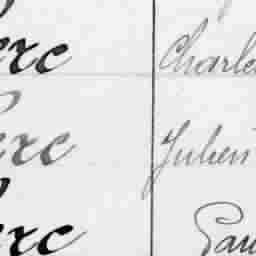 erc Charle
erc Julien
erc Pau